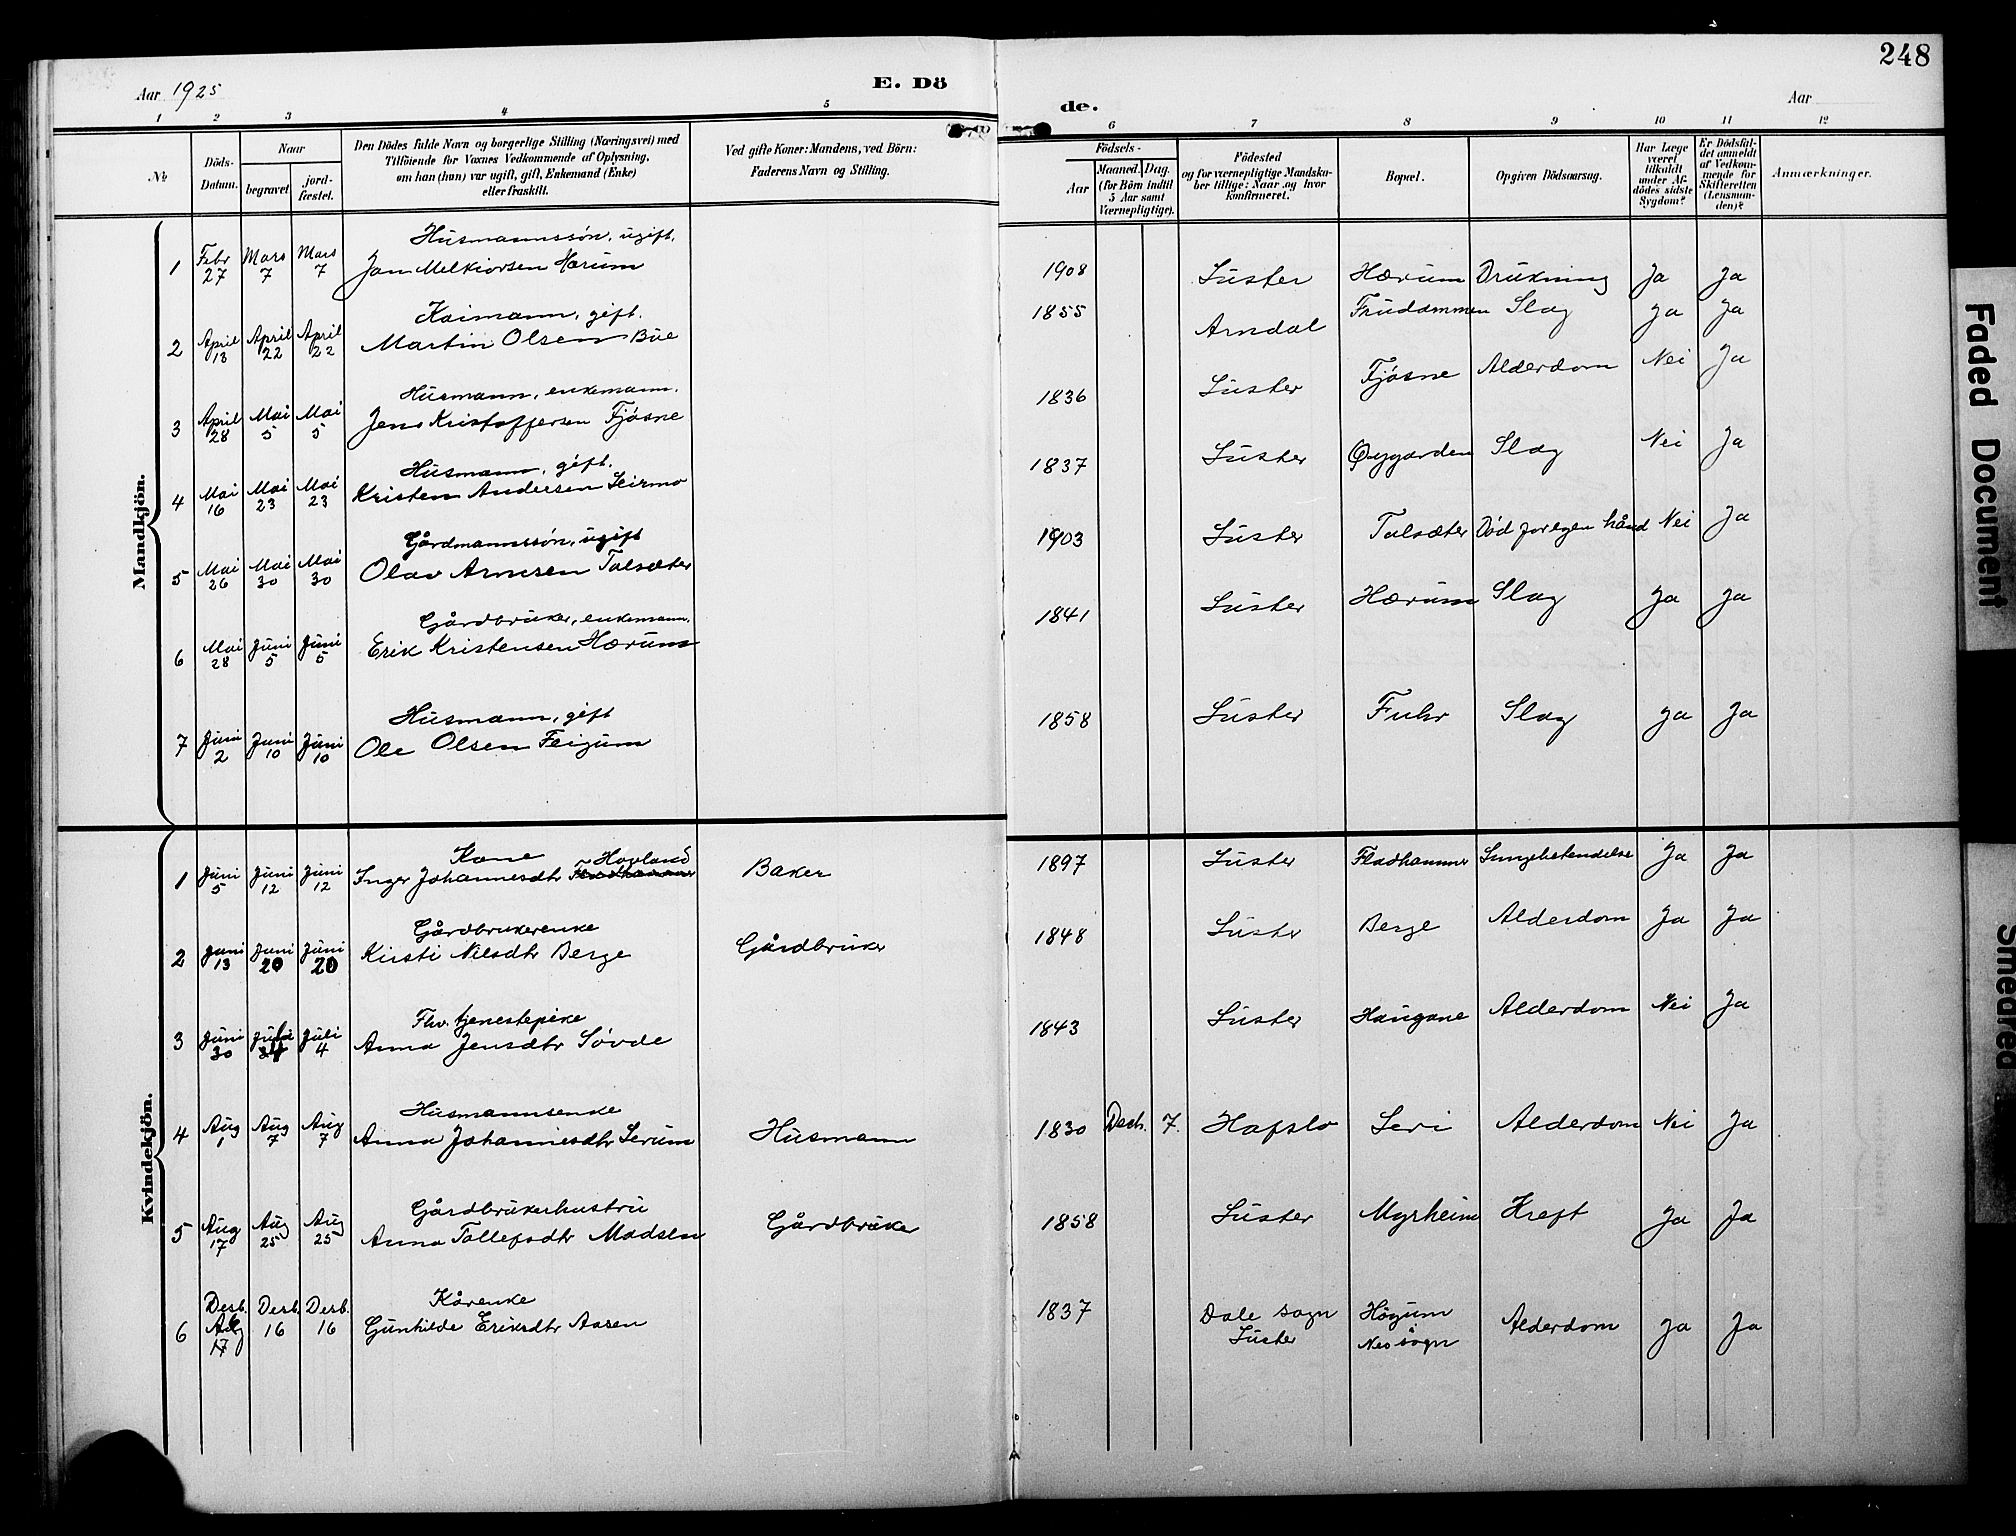 248
Aar 1925
E. Dö
de.
Aar
1 2 3 4 5 6 7 8 9 10 11 12
No
Döds-Datum.
Naar
begravet
jord-fæstet.
Den Dödes fulde Navn og borgerlige Stilling (Næringsvei) med
Tilföiende for Voxnes Vedkommende af Oplysning,
om han (hun) var ugift, gift, Enkemand (Enke)
eller fraskilt.
Ved gifte Koner: Mandens, ved Börn:
Faderens Navn og Stilling.
Födsels-
Aar
Maaned. Dag.
(for Börn indtil
5 Aar samt
Værnepligtige).
Födested
og for værnepligtige Mandska-
ber tillige: Naar og hvor
konfirmeret.
Bopæl.
Opgiven Dödsaarsag.
Har Læge
været
tilkaldt
under Af-
dödes sidste
Sygdom?
Er Dödsfal-
det anmeldt
af Vedkom-
mende for
Skifteretten
(Lensman-
den)?
Anmærkninger.
Mandkjön.
Husmannssön, ugift.
1 Febr 27 Mars 7 Mars 7 Jan Melkiorsen Hærum 1908 Luster Hærum Drukning Ja Ja
Kaimann, gift.
2 April 13 April 22 April 22 Martin Olsen Büe 1855 Arndal Slag Ja Ja
Husmann, enkemann.
3 April 28 Mai 5 Mai 5 Jens Kristoffersen Fjösne 1836 Luster Fjösne Alderdom Nei Ja
Husmann, gift.
4 Mai 16 Mai 23 Mai 23 Kristen Andersen Leirmo 1837 Luster Øygarden Slag Nei Ja
Gårdmannssön, ugift
5 Mai 26 Mai 30 Mai 30 Olav Arnesen Talsæter 1903 Luster Talsæter Död for egen hånd Nei Ja
Gårdbruker, enkemann.
6 Mai 28 Juni 5 Juni 5 Erik Kristensen Hærum 1841 Luster Hærum Slag Ja Ja
Husmann, gift
7 Juni 2 Juni 10 Juni 10 Ole Olsen Feigum 1858 Luster Fuhr Slag Ja Ja
Kvindekjön.
Kone Hovland
1 Juni 5 Juni 12 Juni 12 Inger Johannesdtr Baker 1897 Luster Fladhammer Lungebetendelse Ja Ja
Gårdbrukerenke
2 Juni 13 Juni 20 Juni 20 Kirsti Nilsdtr Berge Gårdbruker 1848 Luster Berge Alderdom Ja Ja
Fhv. tjenestepike
3 Juni 30 Juli 4 Juli 4 Anna Jensdtr Sövde 1843 Luster Haugane Alderdom Nei Ja
Husmannsenke
4 Aug 1 Aug 7 Aug 7 Anna Johannesdtr Lerum Husmann 1830 Desb. 7. Hafslo Leri Alderdom Nei Ja
Gårdbrukerhustru
5 Aug 17 Aug 25 Aug 25 Anna Tollefsdtr Madsen Gårdbruker 1858 Luster Myrheim Kreft Ja Ja
Kårenke
6 Desb. 6 Desb. 16 Desb. 16 Gunhilde Eriksdtr Aasen 1837 Dale sogn Luster Högum Nes sogn Alderdom Ja Ja
Faded Document
Smeared